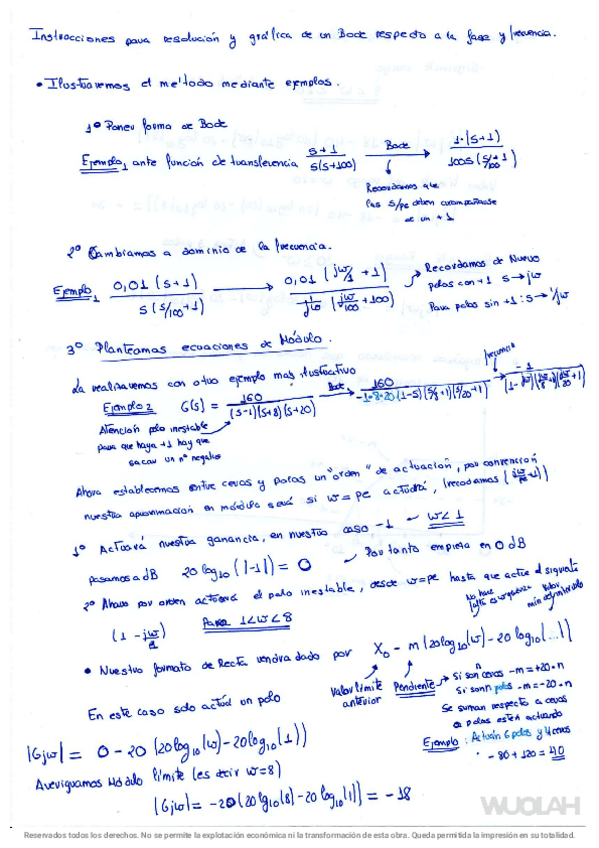 Instrucciones para resolución y gráfica de un Bode respecto a la fase y frecuencia.
• Ilustraremos el método mediante ejemplos.
1º Poner forma de Bode
Ejemplo 1 ante función de transferencia s+1 / s(s+100) Bode → 1·(s+1) / 100s (s/100+1)
Recordamos que
las s/pe deben acompañarse
de un +1
2º Cambiamos a dominio de la frecuencia.
Ejemplo 1 0,01 (s+1) / s (s/100+1) → 0,01 (jw/1 + 1) / (jw/100 + 100)
Recordamos de Nuevo
polos con +1 s→jw
Para polos sin +1: s→1/jw
3º Planteamos ecuaciones de Módulo.
La realizaremos con otro ejemplo mas ilustrativo
Ejemplo 2 G(s) = 160 / (s-1)(s+8)(s+20) Bode → 160 / -1·8·20(1-s)(s/8+1)(s/20+1) frecuencia
Atención polo inestable
para que haya +1 hay que
sacar un nº negativo
Ahora establecemos entre ceros y polos un "orden" de actuación, por convención
nuestra aproximación en módulo será si w=pe actuará, (recordamos (jw/pe+1))
1º Actuará nuestra ganancia, en nuestro caso -1 — w<1
pasamos a dB 20log10(|-1|) = 0 — Por tanto empieza en 0 dB
2º Ahora por orden actuará el polo inestable, desde w=pe hasta que actúe el siguiente
(1 - jw/1) Para 1<w<8
• Nuestro formato de Recta vendrá dado por X0 - m(20log10(w) - 20log10(...))
Valor límite
anterior
Pendiente
Si son n ceros -m=+20·n
Si son n polos -m=-20·n
Se suman respecto a ceros
o polos estén actuando
Ejemplo: Actúan 6 polos y 4 ceros
En este caso solo actúa un polo
|Gjw| = 0 - 20 (20log10(w) - 20log10(1))
Averiguamos Módulo límite (es decir w=8)
|Gjw| = -20(20lg10(8) - 20log10(1)) = -18
WUOLAH
Reservados todos los derechos. No se permite la explotación económica ni la transformación de esta obra. Queda permitida la impresión en su totalidad.